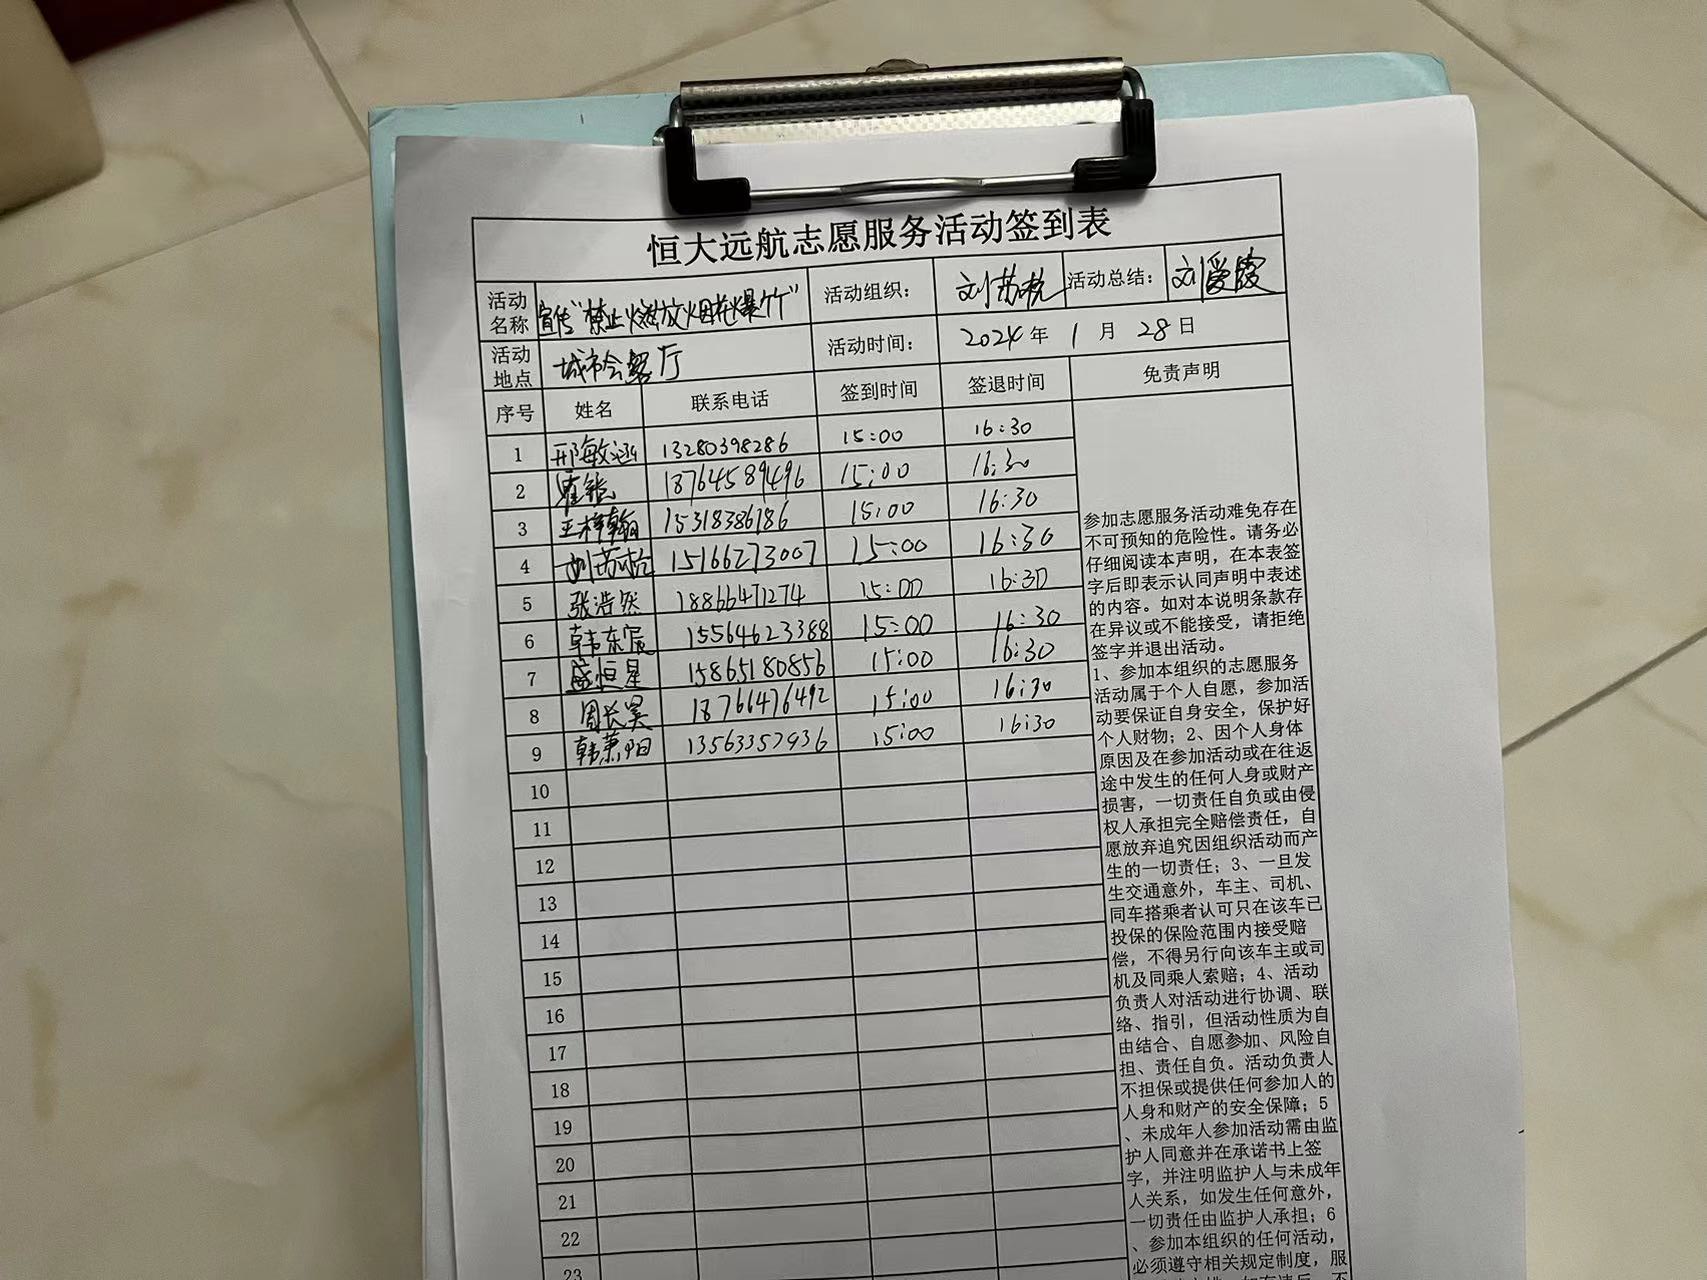 恒大远航志愿服务活动签到表
活动名称 宣传"禁止燃放烟花爆竹" 活动组织： 刘苏杭 活动总结： 刘爱霞
活动地点 城市会客厅 活动时间： 2024年 1月 28日
序号 姓名 联系电话 签到时间 签退时间 免责声明
1 邢敏涵 13280398286 15:00 16:30
2 18764589496 15:00 16:30
3 王梓翰 15318386186 15:00 16:30
4 刘苏杭 15166273007 15:00 16:30
5 张浩然 18866471274 15:00 16:30
6 韩东宸 15564623388 15:00 16:30
7 盛恒星 15865180856 15:00 16:30
8 周长昊 18766476492 15:00 16:30
9 韩萧阳 13563357936 15:00 16:30
10
11
12
13
14
15
16
17
18
19
20
21
22
23
参加志愿服务活动难免存在
不可预知的危险性。请务必
仔细阅读本声明，在本表签
字后即表示认同声明中表述
的内容。如对本说明条款存
在异议或不能接受，请拒绝
签字并退出活动。
1、参加本组织的志愿服务
活动属于个人自愿，参加活
动要保证自身安全，保护好
个人财物；2、因个人身体
原因及在参加活动或在往返
途中发生的任何人身或财产
损害，一切责任自负或由侵
权人承担完全赔偿责任，自
愿放弃追究因组织活动而产
生的一切责任；3、一旦发
生交通意外，车主、司机、
同车搭乘者认可只在该车已
投保的保险范围内接受赔
偿，不得另行向该车主或司
机及同乘人索赔；4、活动
负责人对活动进行协调、联
络、指引，但活动性质为自
由结合、自愿参加、风险自
担、责任自负。活动负责人
不担保或提供任何参加人的
人身和财产的安全保障；5
、未成年人参加活动需由监
护人同意并在承诺书上签
字，并注明监护人与未成年
人关系，如发生任何意外，
一切责任由监护人承担；6
、参加本组织的任何活动，
必须遵守相关规定制度，服